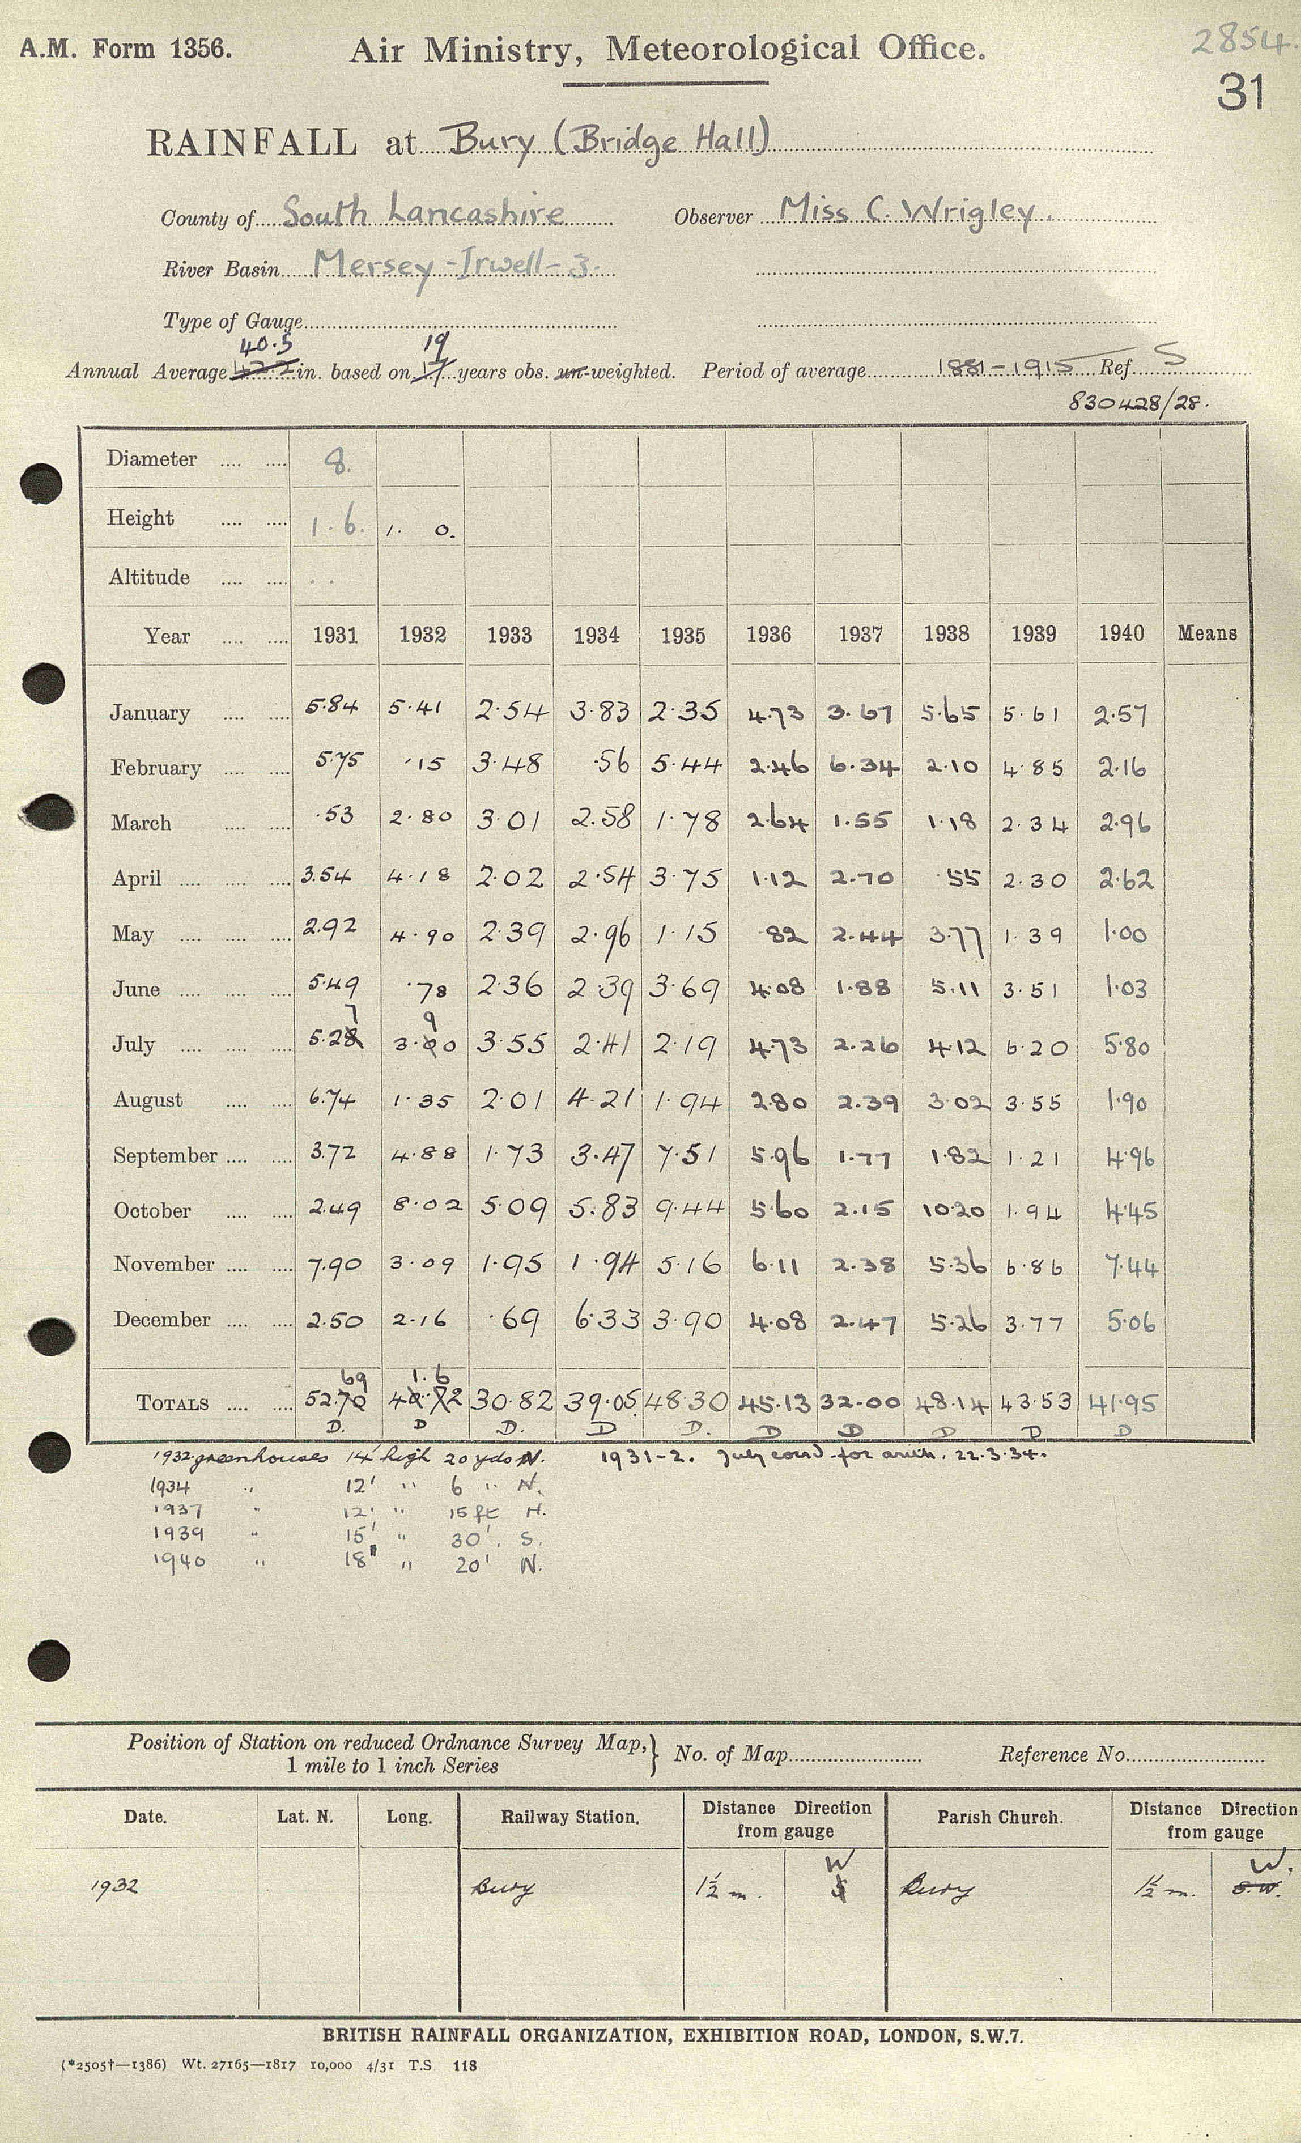 A.M. Form 1356. Air Ministry, Meteorological Office. 2854.
31
RAINFALL at Bury (Bridge Hall)
County of South Lancashire Observer Miss C. Wrigley.
River Basin Mersey-Irwell-3.
Type of Gauge
40.5 19
Annual Average 42.2 in. based on 17 years obs. un-weighted. Period of average 1881-1915 Ref. S
830428/28.
Diameter 8.
Height 1. 6. 1. 0.
Altitude . .
Year 1931 1932 1933 1934 1935 1936 1937 1938 1939 1940 Means
January 5.84 5.41 2.54 3.83 2.35 4.73 3.67 5.65 5.61 2.57
February 5.75 .15 3.48 .56 5.44 2.46 6.34 2.10 4.85 2.16
March .53 2.80 3.01 2.58 1.78 2.64 1.55 1.18 2.34 2.96
April 3.54 4.18 2.02 2.54 3.75 1.12 2.70 .55 2.30 2.62
May 2.92 4.90 2.39 2.96 1.15 .82 2.44 3.77 1.39 1.00
June 5.49 .78 2.36 2.39 3.69 4.08 1.88 5.11 3.51 1.03
7 9
July 5.28 3.00 3.55 2.41 2.19 4.73 2.26 4.12 6.20 5.80
August 6.74 1.35 2.01 4.21 1.94 2.80 2.39 3.02 3.55 1.90
September 3.72 4.88 1.73 3.47 7.51 5.96 1.77 1.82 1.21 4.96
October 2.49 8.02 5.09 5.83 9.44 5.60 2.15 10.20 1.94 4.45
November 7.90 3.09 1.95 1.94 5.16 6.11 2.38 5.36 6.86 7.44
December 2.50 2.16 .69 6.33 3.90 4.08 2.47 5.26 3.77 5.06
69 1.6
TOTALS 52.70 40.72 30.82 39.05 48.30 45.13 32.00 48.14 43.53 41.95
D. D D. D D. D D D D D
1932 greenhouses 14' high 20 yds N. 1931-2. July corrd. for arith. 22.3.34.
1934 " 12' " 6 " N.
1937 " 12' " 15 ft N.
1939 " 15' " 30'. S.
1940 " 18' " 20' N.
Position of Station on reduced Ordnance Survey Map, } No. of Map Reference No.
1 mile to 1 inch Series
Date. Lat. N. Long. Railway Station. Distance Direction from gauge Parish Church. Distance Direction from gauge
W W.
1932 Bury 1½ m. S Bury 1½ m. S.W.
BRITISH RAINFALL ORGANIZATION, EXHIBITION ROAD, LONDON, S.W.7.
(*2505†—1386) Wt. 27165—1817 10,000 4/31 T.S. 118